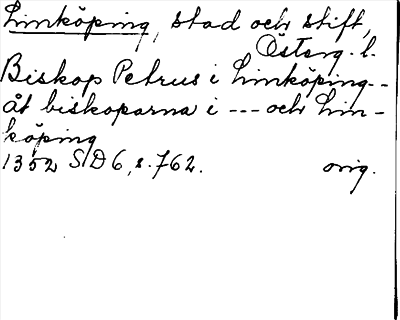 Linköping, stad och stift,
Österg. l.
Biskop Petrus i Linköping--
åt biskoparna i --- och Lin-
köping
1352 SD6, s. 762. orig.